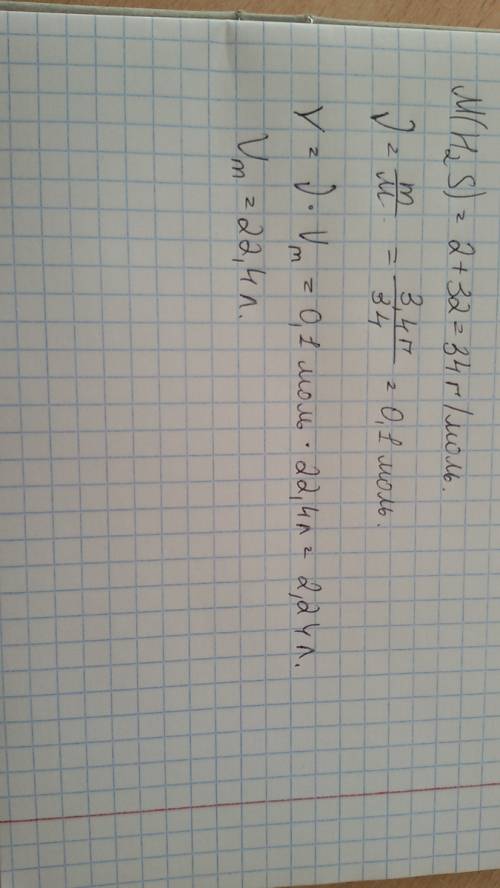 M(H₂S) = 2 + 32 = 34 г/моль.
ν = m/M = 3,4г/34 = 0,1 моль.
V = ν · Vm = 0,1 моль · 22,4л = 2,24л.
Vm = 22,4л.